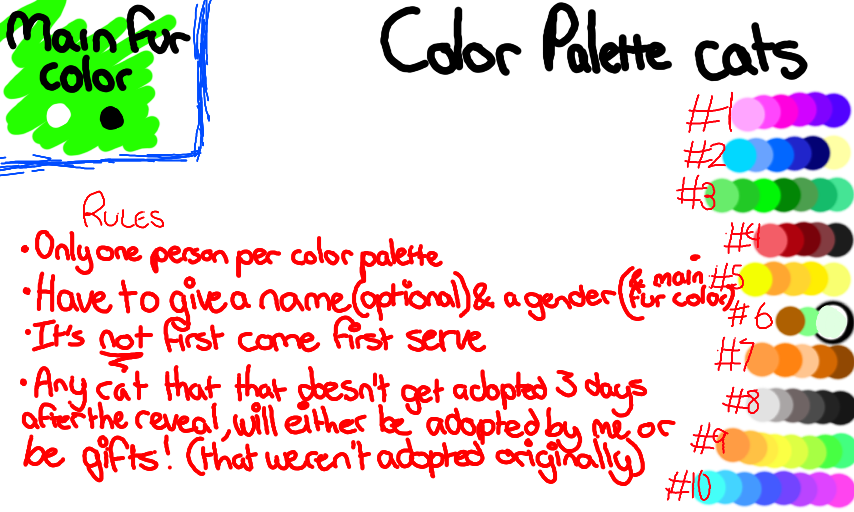 Main fur
color
Color Palette cats
#1
#2
#3
#4
#5
#6
#7
#8
#9
#10
Rules
• Only one person per color palette
• Have to give a name (optional) & a gender (& main fur color)
• It's not first come first serve
• Any cat that that doesn't get adopted 3 days
after the reveal, will either be adopted by me, or
be gifts! (that weren't adopted originally)